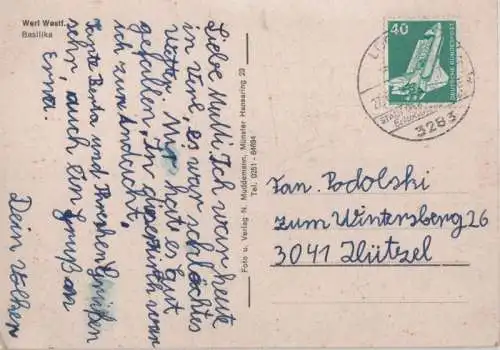 Werl Westf.
Basilika
Liebe Mutti Ich war heute
in Verl, es war schlechtes
Wetter. Mir hat es Gut
gefallen, In war
ich zur Andacht.
Tante Berta und Grüßen
sehr, auch ein Gruß an
Erna.
Dein Volker
Foto u. Verlag N. Muddemann, Münster Hansaring 20
Tel. 0251 - 6 
DEUTSCHE BUNDESPOST
40
3283
Fam. Podolski
zum Wintersberg 26
3041 Hützel